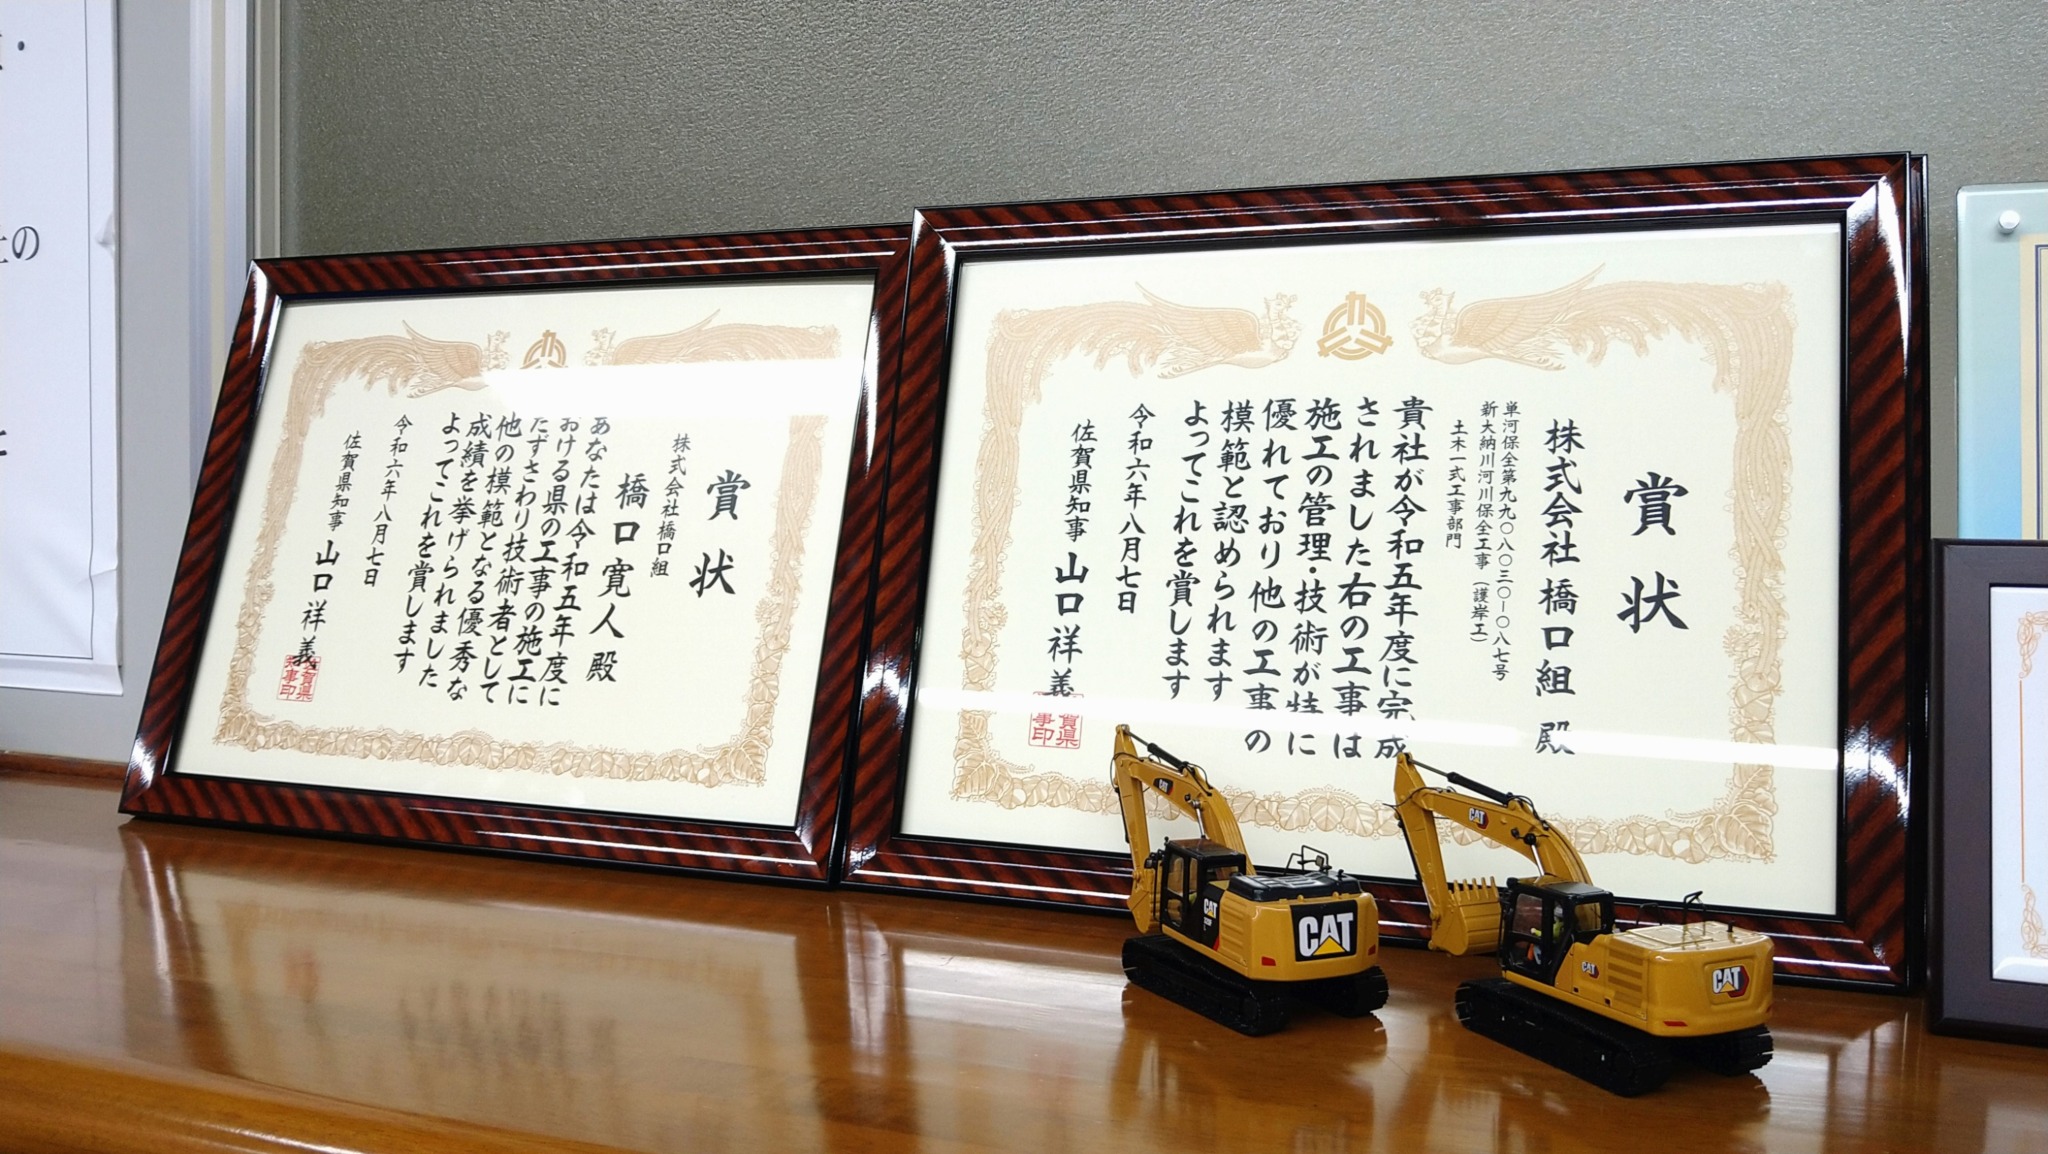 賞状
株式会社橋口組
橋口寛人殿
あなたは令和五年度に
おける県の工事の施工に
たずさわり技術者として
他の模範となる優秀な
成績を挙げられました
よってこれを賞します
令和六年八月七日
佐賀県知事 山口祥義
賞状
株式会社橋口組殿
単河保全第九九〇八〇三〇-〇八七号
新大納川河川保全工事(護岸工)
土木一式工事部門
貴社が令和五年度に完成
されました右の工事は
施工の管理・技術が特に
優れており他の工事の
模範と認められます
よってこれを賞します
令和六年八月七日
佐賀県知事 山口祥義
CAT
CAT
CAT
CAT
CAT
の